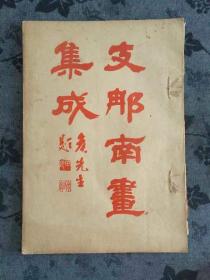 支那南畫
集成
先生
題